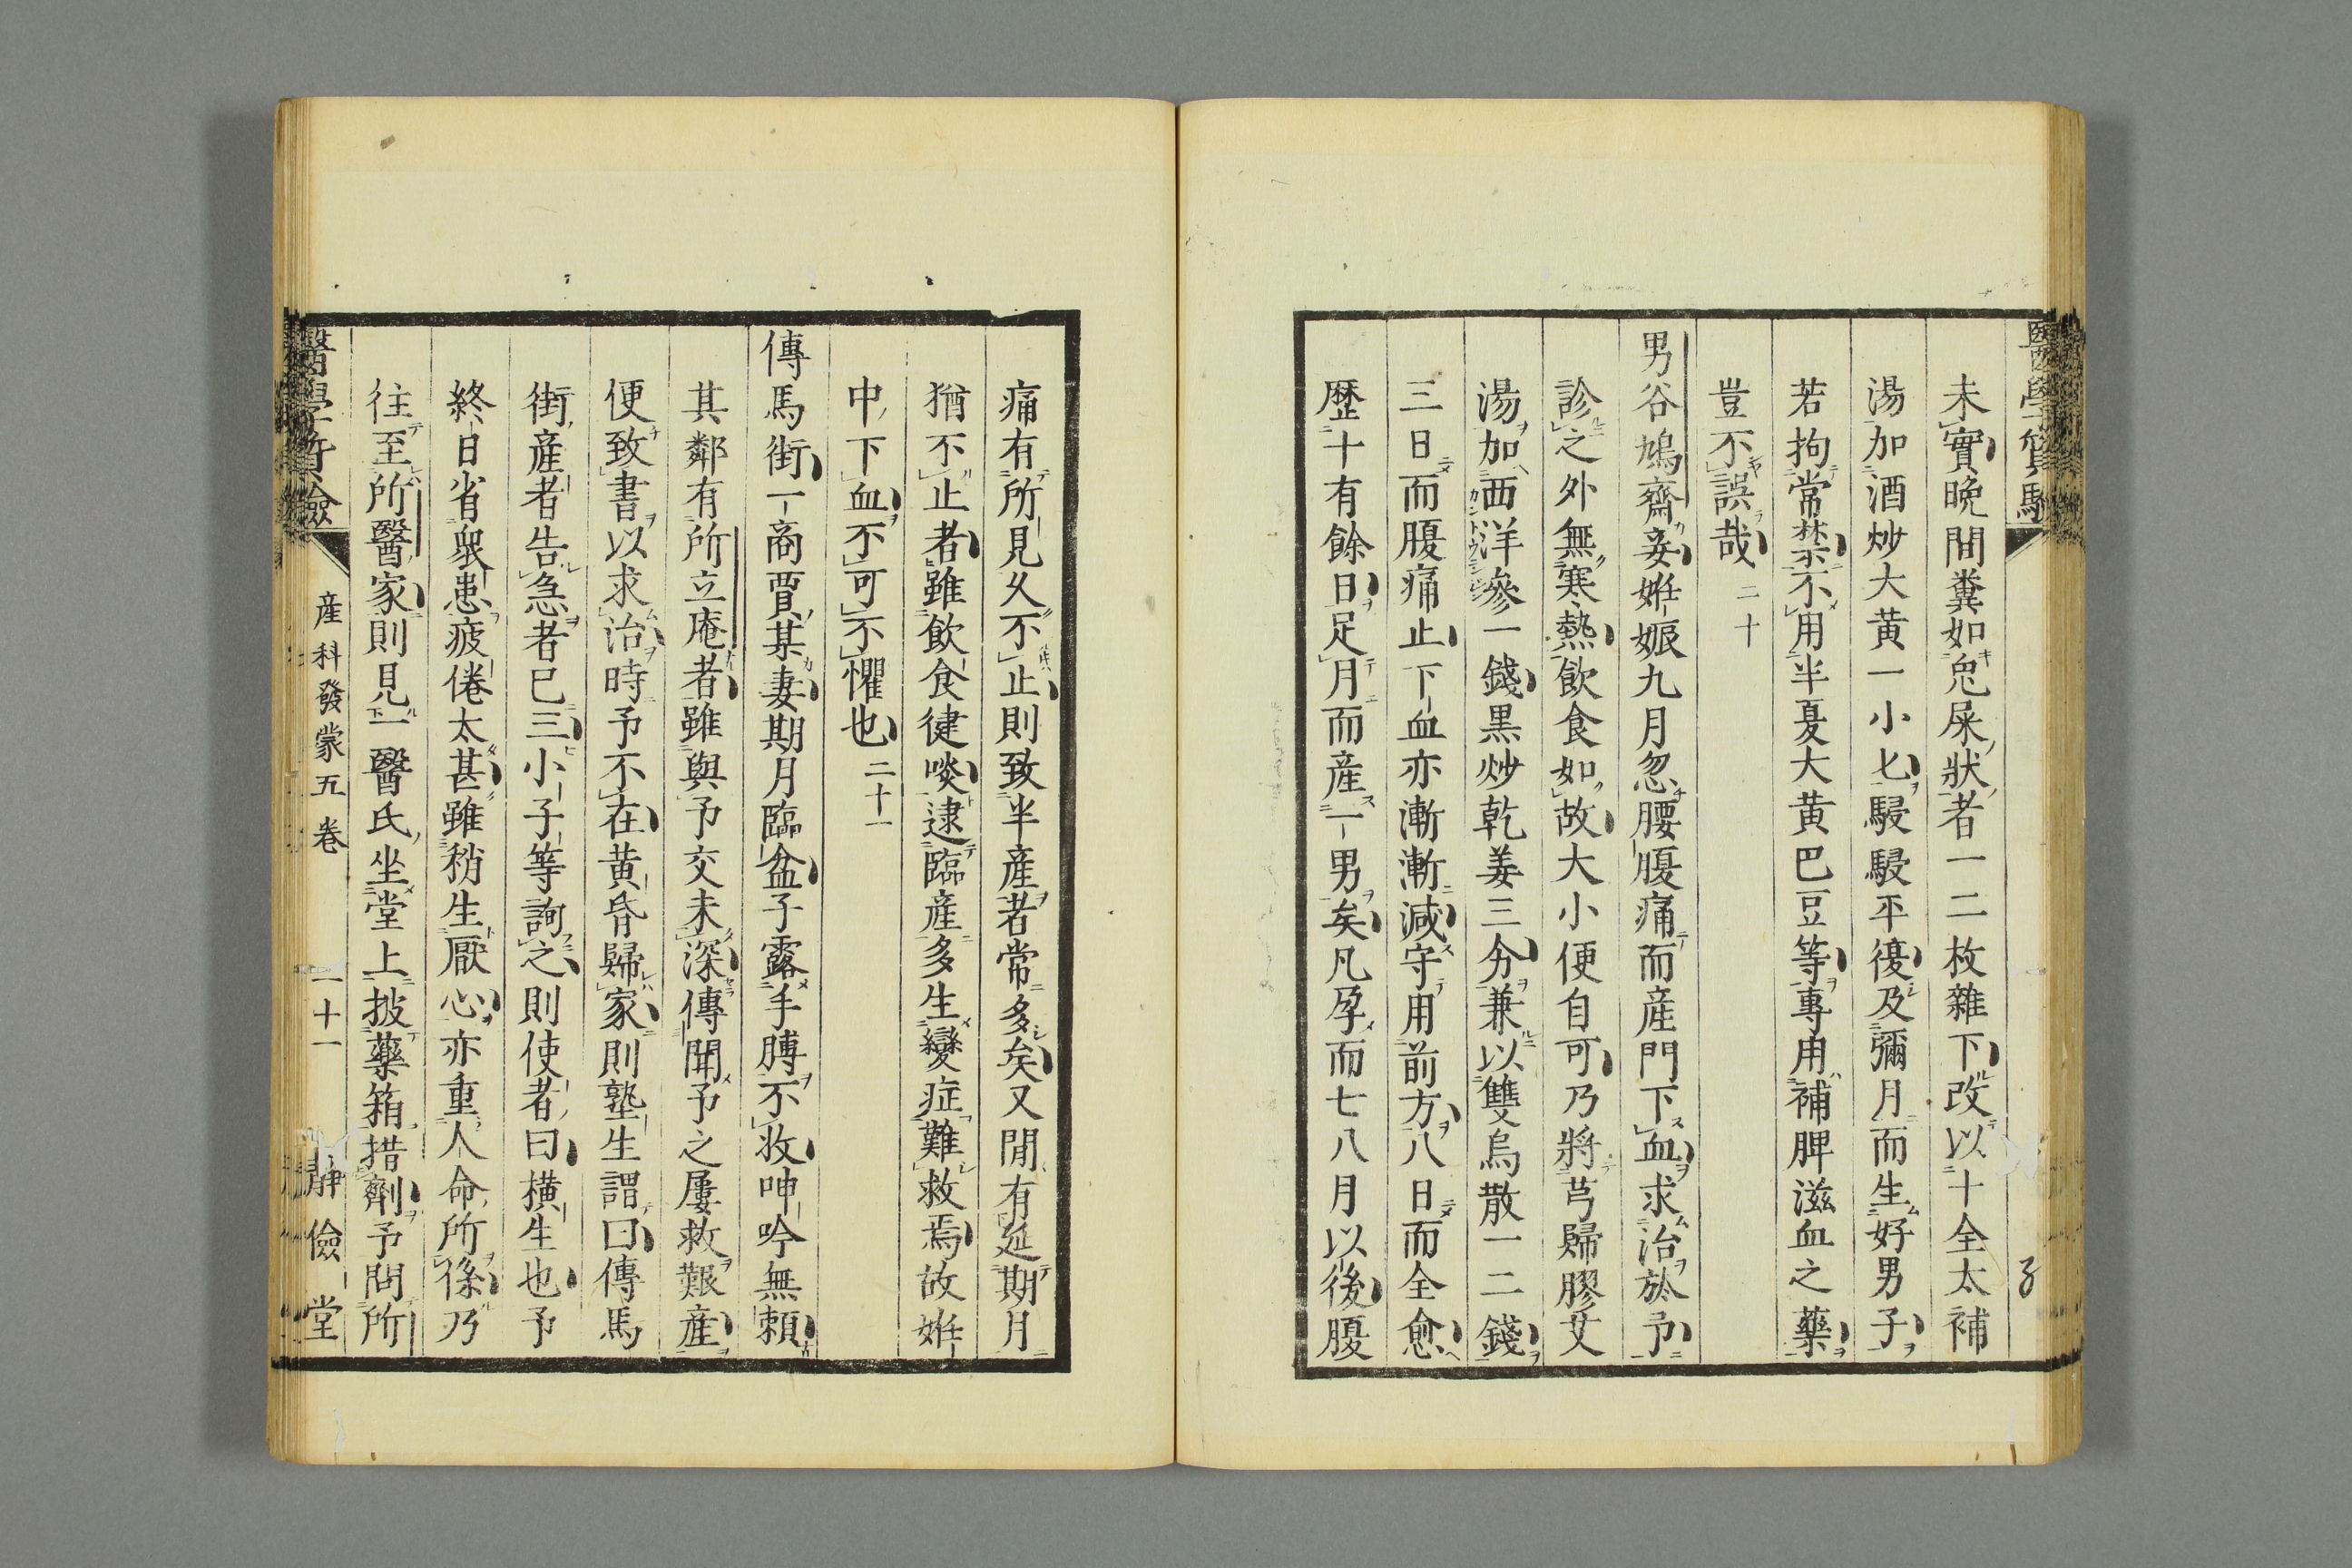 醫學質驗
未實晚間糞如兔屎狀者一二枚雜下改以十全太補
湯加酒炒大黄一小匕駸駸平復及彌月而生好男子
若拘常禁不用半夏大黄巴豆等專用補脾滋血之藥
豈不誤哉 二十
男谷鳩齋妾姙娠九月忽腰腹痛而産門下血求治於予
診之外無寒熱飲食如故大小便自可乃將芎歸膠艾
湯加西洋參一錢黒炒乾姜三分兼以雙烏散一二錢
三日而腹痛止下血亦漸漸減守用前方八日而全愈
歴十有餘日足月而産一男矣凡孕而七八月以後腹
痛有所見久不止則致半産者常多矣又間有延期月
猶不止者雖飲食健啖逮臨産多生變症難救焉故姙
中下血不可不懼也 二十一
傳馬街一商賈某妻期月臨盆子露手膊不收呻吟無頼
其鄰有所立庵者雖與予交未深傳聞予之屢救艱産
便致書以求治時予不在黄昏歸家則塾生謂曰傳馬
街産者告急者已三小子等詢之則使者曰横生也予
終日省衆患疲倦太甚雖稍生厭心亦重人命所係乃
往至所醫家則見一醫氏坐堂上披藥箱措劑予問所
醫學質驗 産科發蒙五卷 二十一 靜儉堂